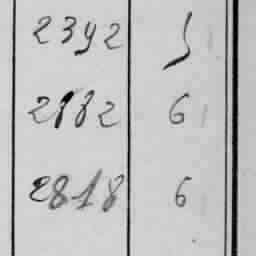 2392 5
2182 6
2818 6